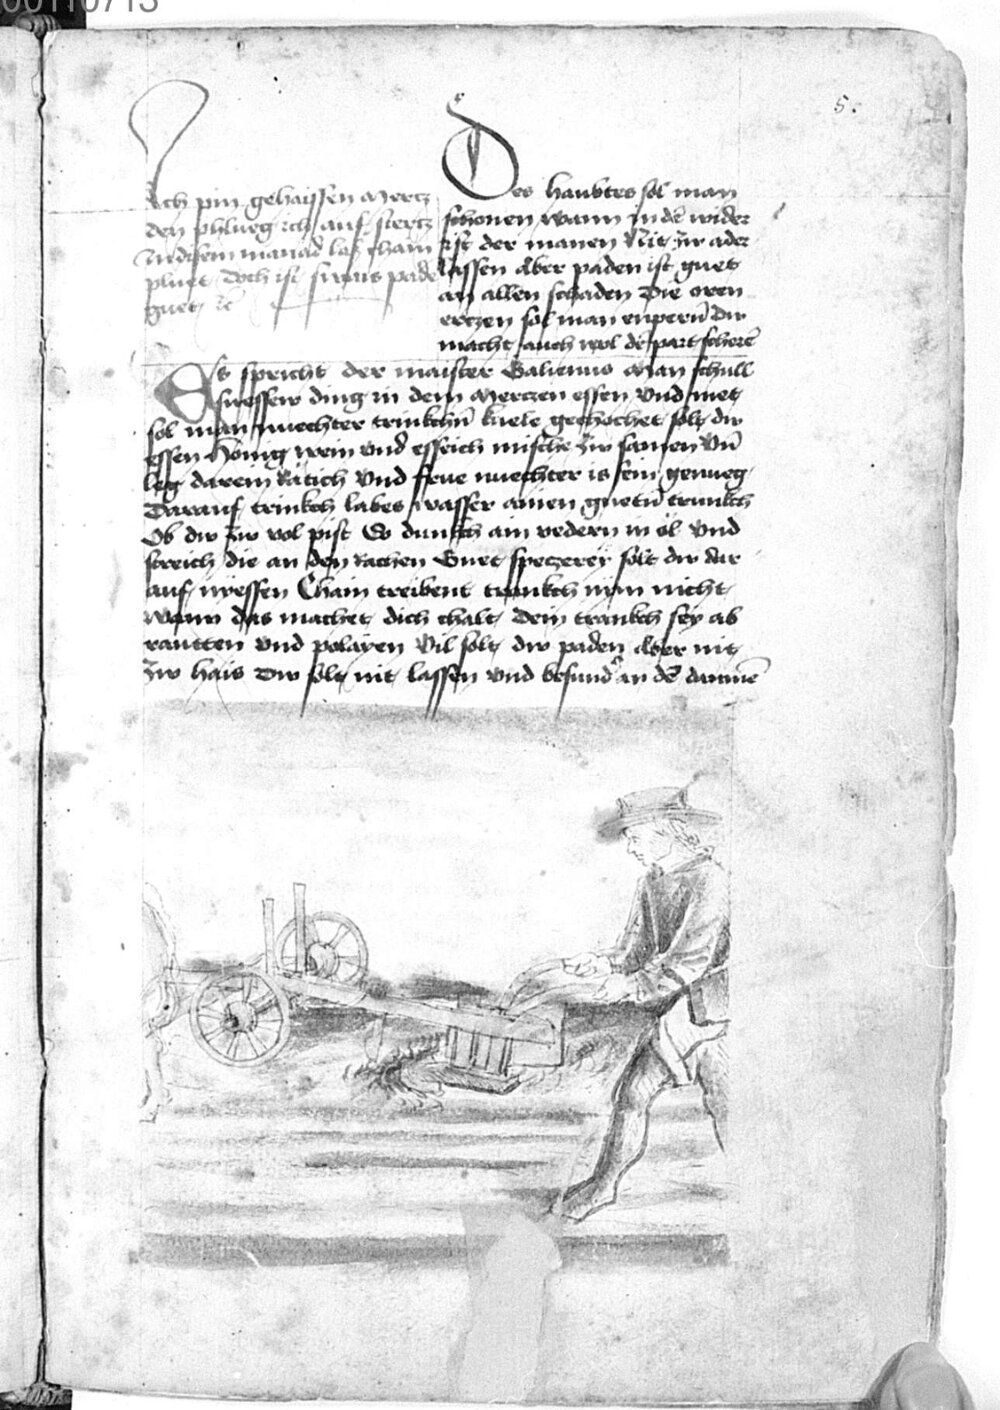 00110713
5.
Ich pin gehaissen Mertz
den phlueg ich auf stertz
In disem manad las chain
pluet Doch ist swais pade
guet etc
Des haubtes sol man
schonen wann in de wider
ist der manen Nit zw ader
lassen Aber paden ist guet
an allen schaden Die oren
ertzen sol man enpern Dir
macht auch wol de part schere
Es spricht der maister Galienus Man schull
suessew ding in dem Mertzen essen Vnd met
sol man nuechter trinkchn kuele gechochet solt dw
essen Honig wein vnd essseich mische zw samen Vn
leg darein Ratich Vnd frue nuechter is sein genueg
Darauf trinkch labes wasser ainen guetn trunkch
Ob dw zw vol pist So dunkch ain vedern in ol Vnd
streich die an den Rachen Guet speczerey solt dw dar
auf nyessen Chain treibent trankch nym nicht
Wann das machet dich chalt Dein trankch sey ab
rautten Vnd polayen Vil solt dw paden Aber nit
zw hais Dw solt nit lassen Vnd besunder an de daumen